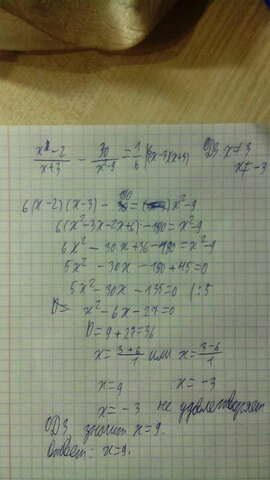 x-2/x+3 - 30/x²-9 = 1/6 |·6(x-3)(x+3) ОДЗ x≠3
x≠-3
6(x-2)(x-3) - 180 = x²-9
6(x²-3x-2x+6)-180=x²-9
6x²-30x+36-180=x²-9
5x²-30x-180+45=0
5x²-30x-135=0 |:5
x²-6x-27=0
D=9+27=36
x=3+6/1 или x=3-6/1
x=9 x=-3
x=-3 не удовлетворяет
ОДЗ значит x=9.
Ответ: x=9.